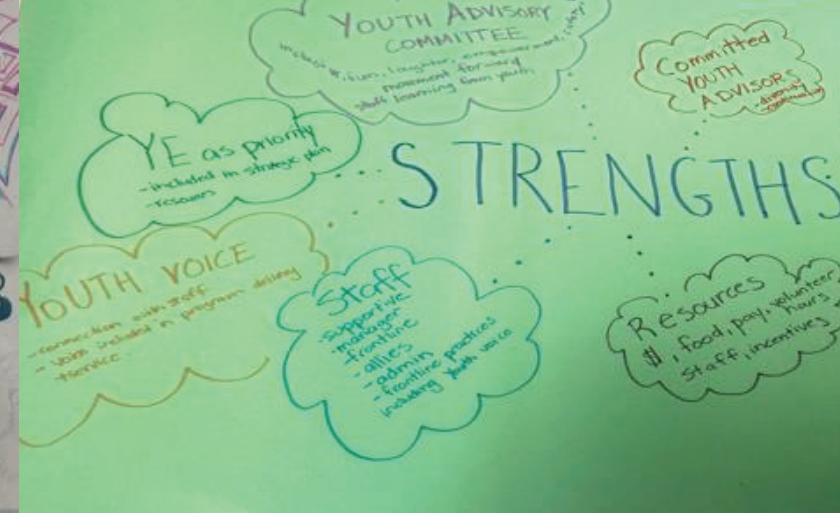 YOUTH ADVISORY
COMMITTEE
fun, laughter, empowerment,
movement forward
staff learning from youth
Committed
YOUTH
ADVISORS
YE as priority
- included in strategic plan
- resources
STRENGTHS
YOUTH VOICE
- connection with staff
- voice included in program delivery
+ service
Staff
- supportive
- manager
- frontline
- allies
- admin
- frontline practices
including youth voice
Resources
$, food, pay, volunteer
hours,
staff, incentives